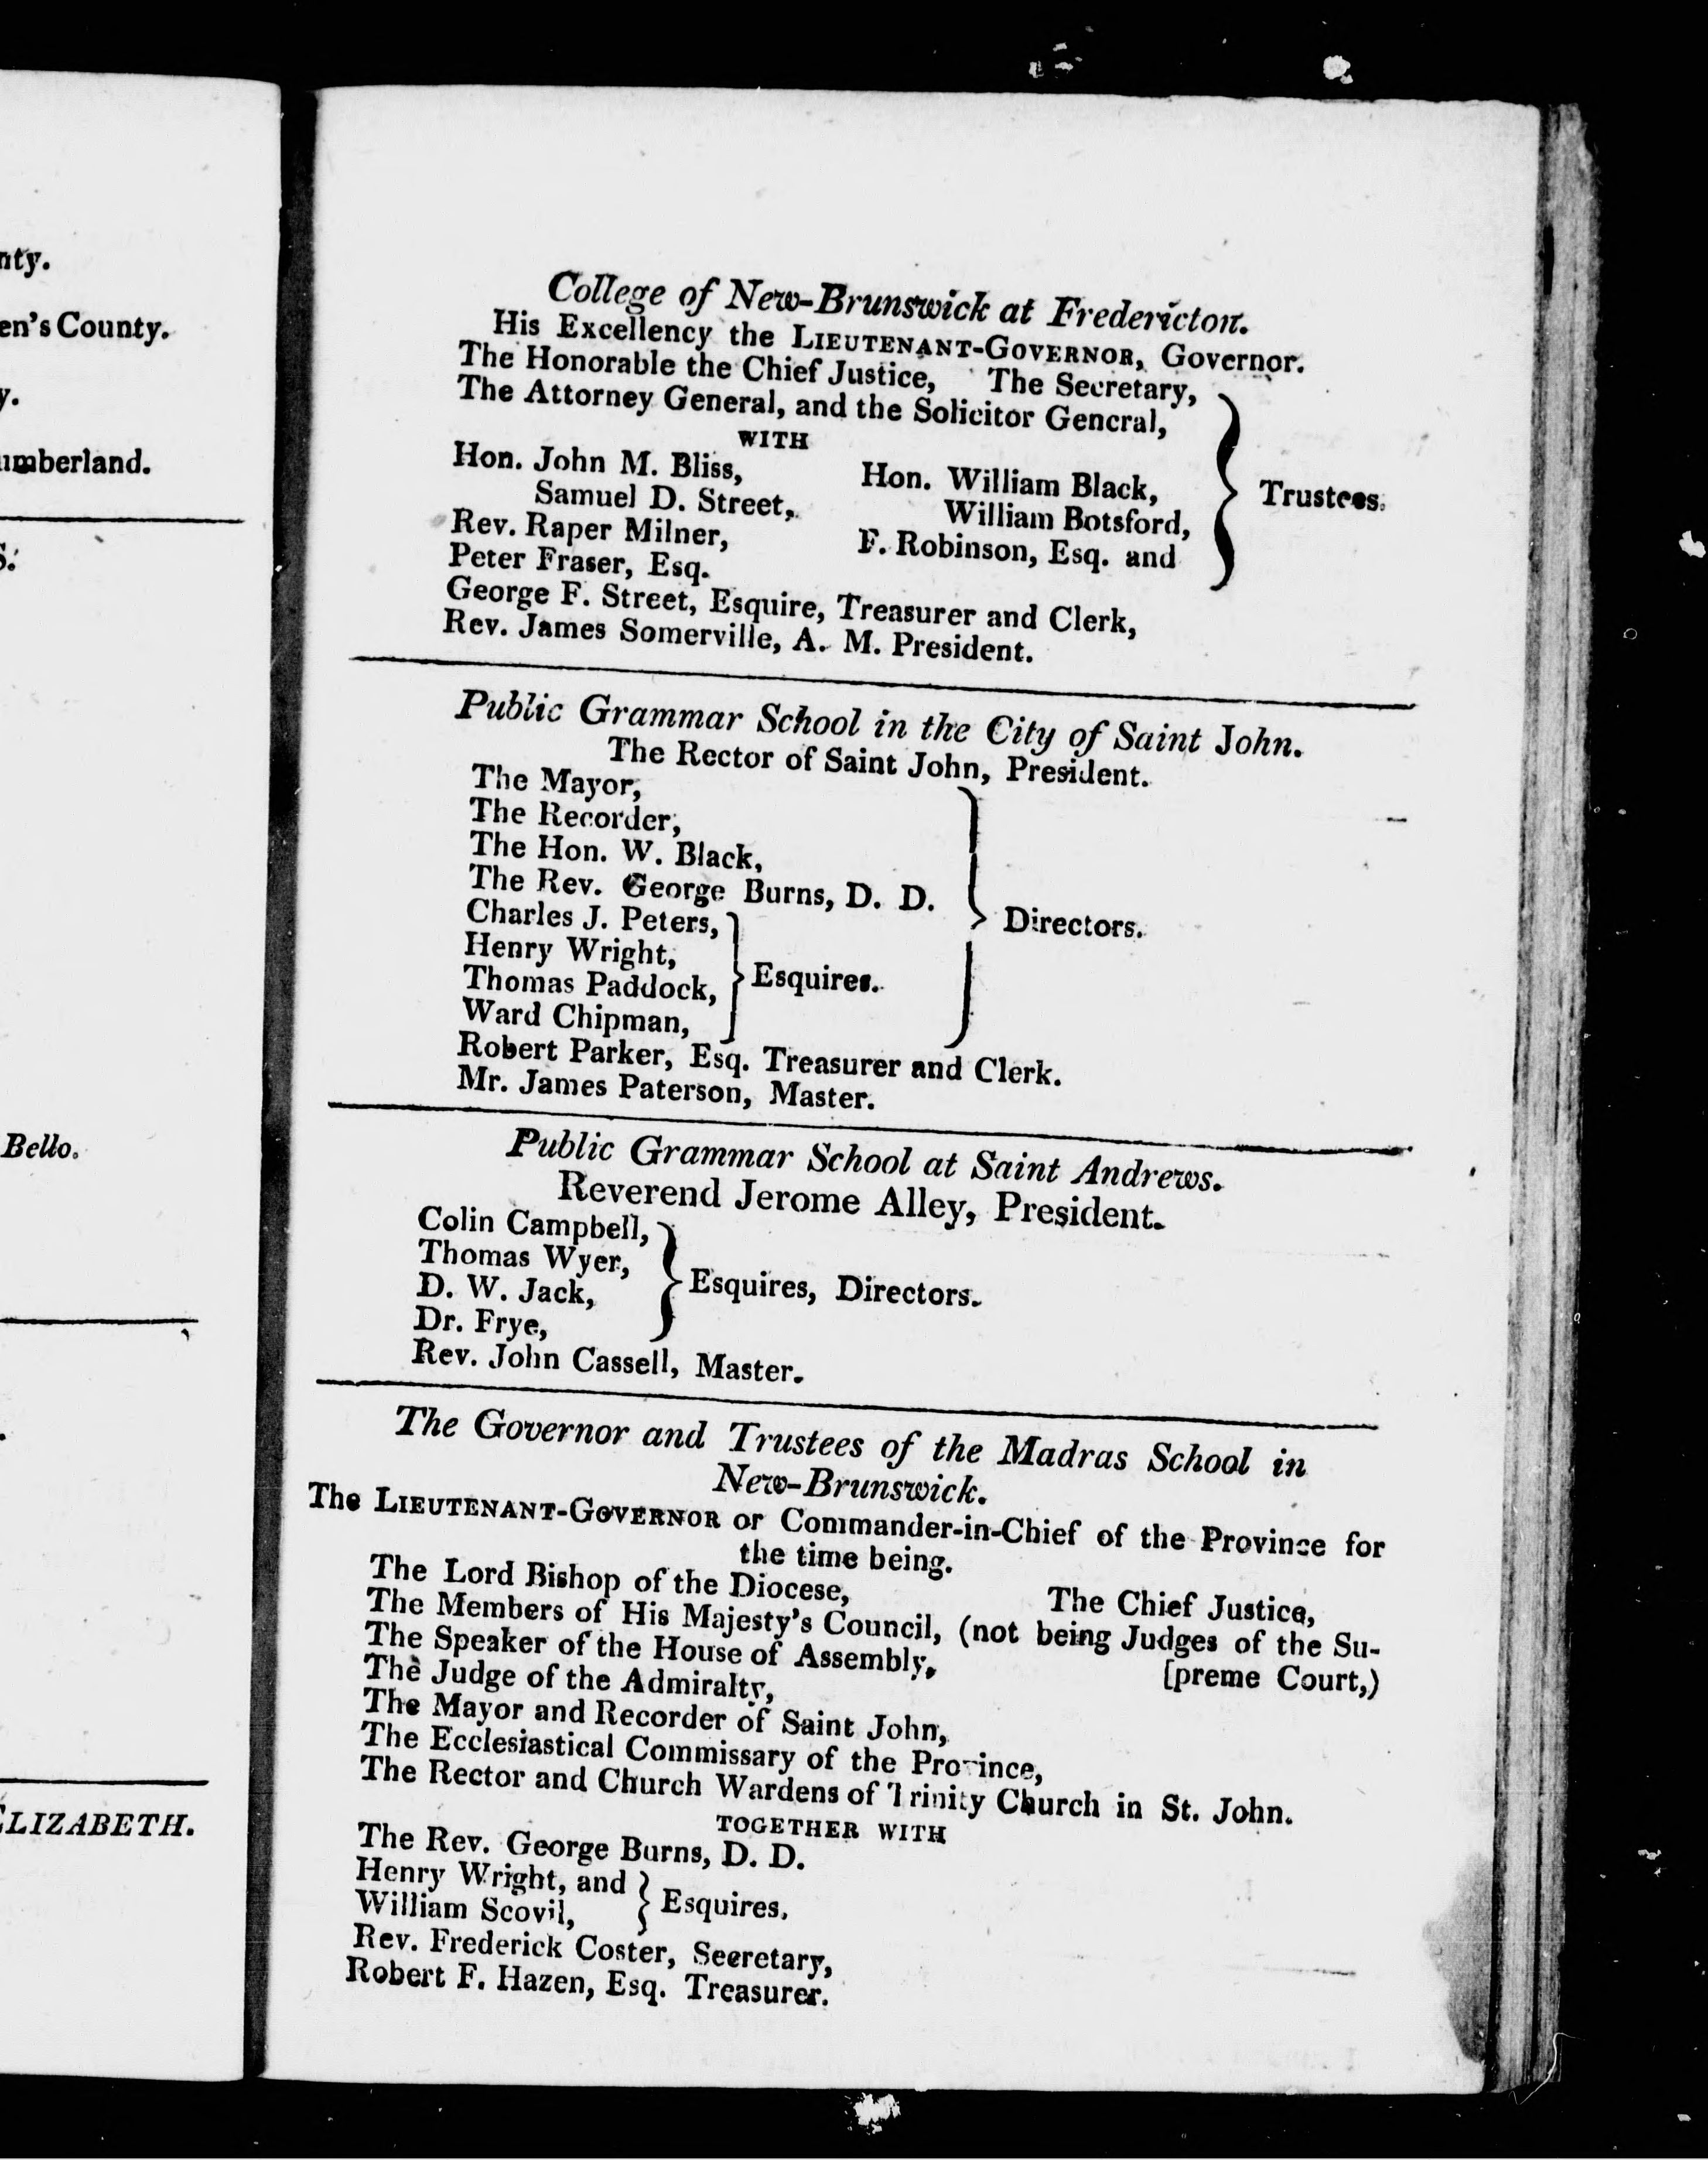 nty.
en's County.
y.
umberland.
S.
Bello.
ELIZABETH.
College of New-Brunswick at Fredericton.
His Excellency the LIEUTENANT-GOVERNOR, Governor.
The Honorable the Chief Justice, The Secretary,
The Attorney General, and the Solicitor General,
WITH
Hon. John M. Bliss, Hon. William Black,
Samuel D. Street, William Botsford,
Rev. Raper Milner, F. Robinson, Esq. and
Peter Fraser, Esq.
Trustees.
George F. Street, Esquire, Treasurer and Clerk,
Rev. James Somerville, A. M. President.
Public Grammar School in the City of Saint John.
The Rector of Saint John, President.
The Mayor,
The Recorder,
The Hon. W. Black,
The Rev. George Burns, D. D.
Charles J. Peters,
Henry Wright,
Thomas Paddock,
Ward Chipman,
Esquires.
Directors.
Robert Parker, Esq. Treasurer and Clerk.
Mr. James Paterson, Master.
Public Grammar School at Saint Andrews.
Reverend Jerome Alley, President.
Colin Campbell,
Thomas Wyer,
D. W. Jack,
Dr. Frye,
Esquires, Directors.
Rev. John Cassell, Master.
The Governor and Trustees of the Madras School in
New-Brunswick.
The LIEUTENANT-GOVERNOR or Commander-in-Chief of the Province for
the time being.
The Lord Bishop of the Diocese, The Chief Justice,
The Members of His Majesty's Council, (not being Judges of the Su-
The Speaker of the House of Assembly, [preme Court,)
The Judge of the Admiralty,
The Mayor and Recorder of Saint John,
The Ecclesiastical Commissary of the Province,
The Rector and Church Wardens of Trinity Church in St. John.
TOGETHER WITH
The Rev. George Burns, D. D.
Henry Wright, and
William Scovil,
Esquires.
Rev. Frederick Coster, Secretary,
Robert F. Hazen, Esq. Treasurer.